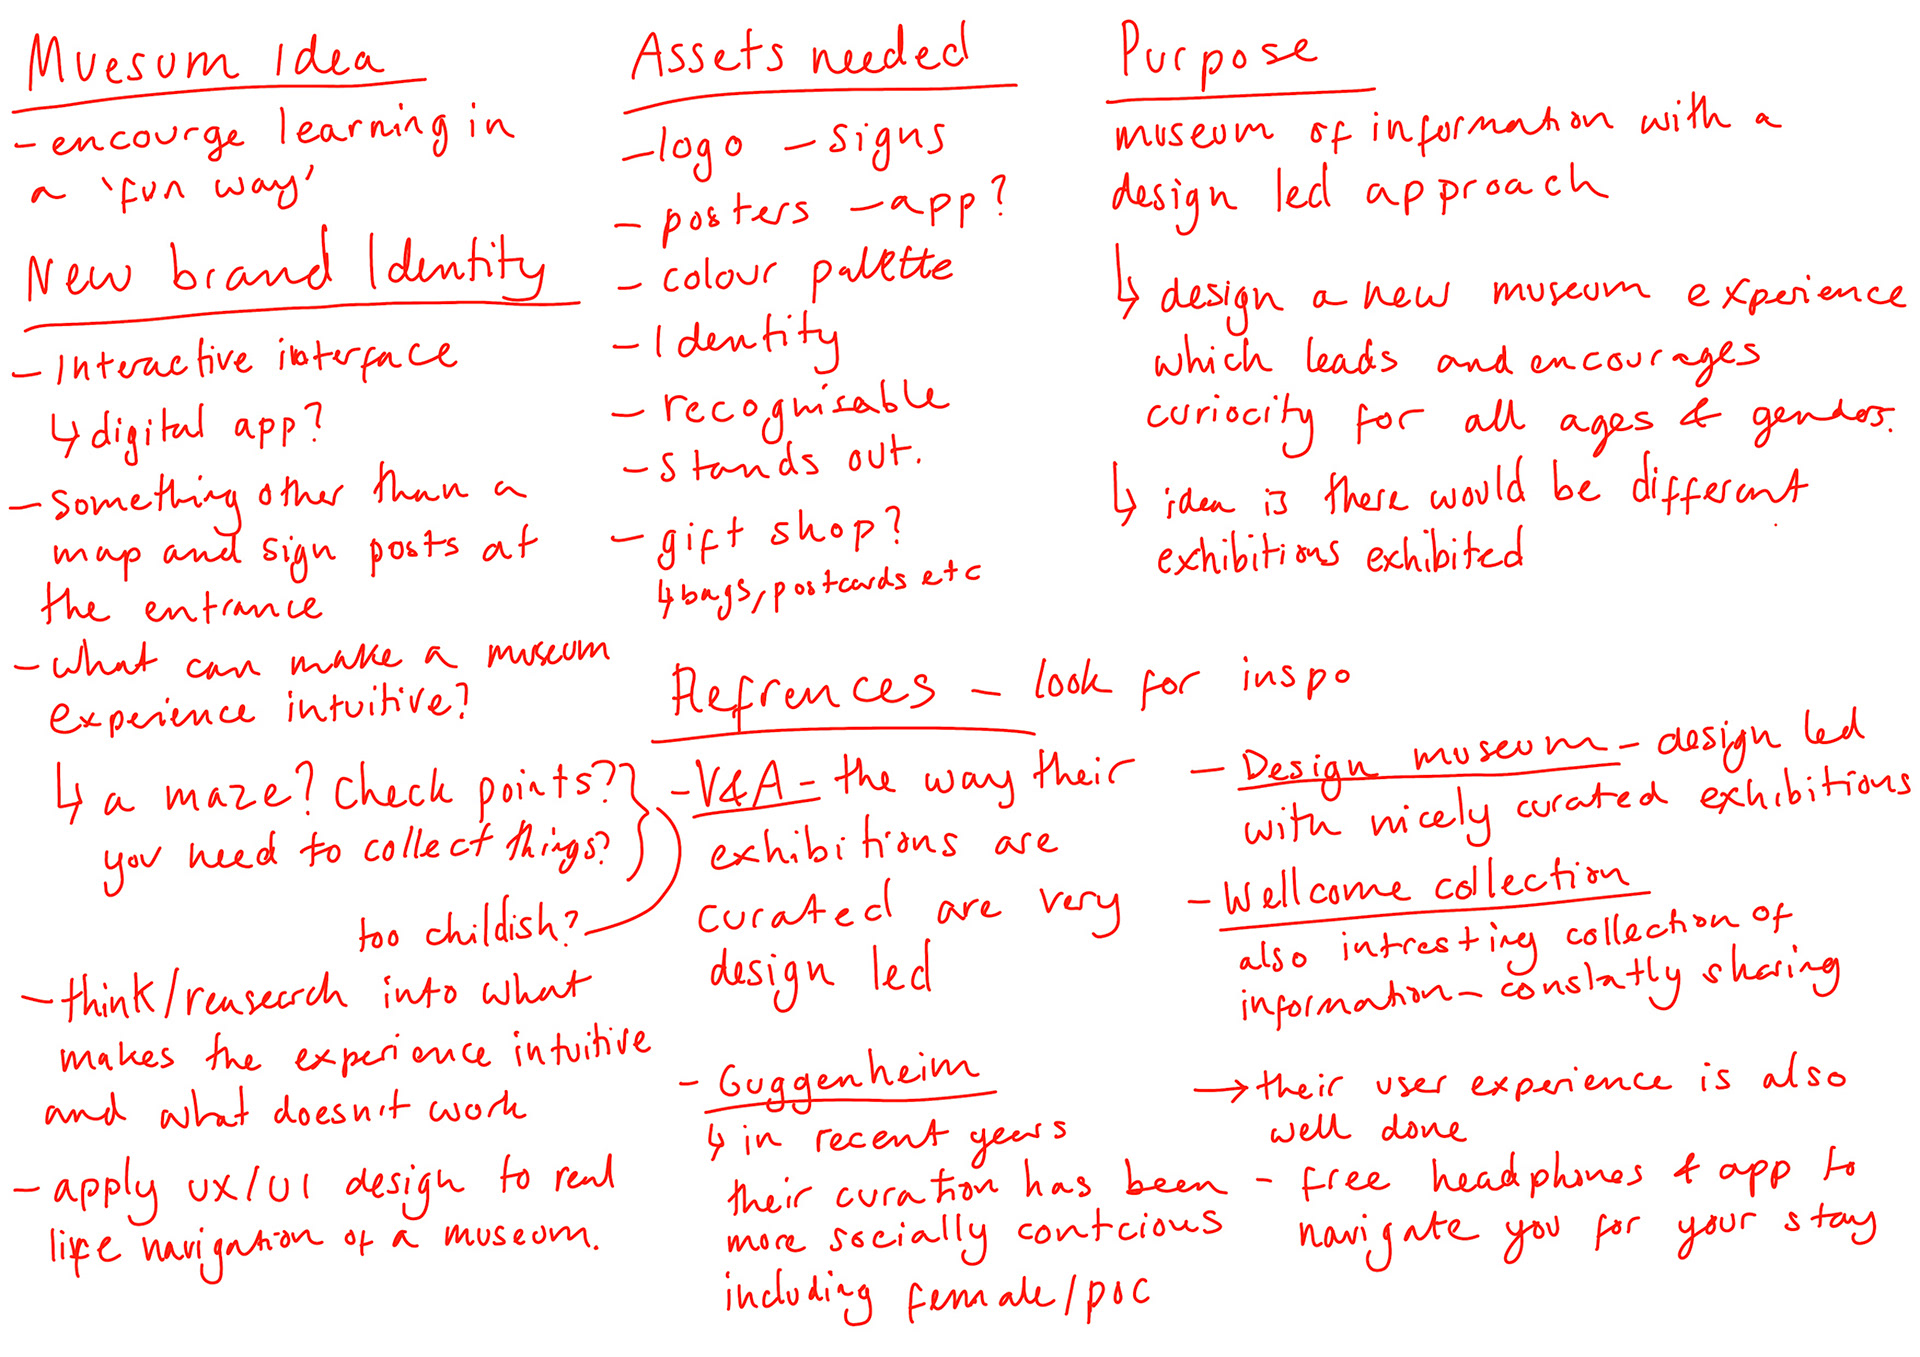 Muesum Idea
- encourge learning in
a 'fun way'
New brand Identity
- Interactive interface
↳ digital app?
- something other than a
map and sign posts at
the entrance
- what can make a museum
experience intuitive?
↳ a maze? Check points?
you need to collect things?
too childish?
- think/reasearch into what
makes the experience intuitive
and what doesn't work
- apply UX/UI design to real
life navigation of a museum.
Assets needed
- logo - signs
- posters - app?
- colour palette
- Identity
- recognisable
- stands out.
- gift shop?
↳ bags, postcards etc
Purpose
museum of information with a
design led approach
↳ design a new museum experience
which leads and encourages
curiocity for all ages & genders.
↳ idea is there would be different
exhibitions exhibited
Refrences - look for inspo
- V&A - the way their
exhibitions are
curated are very
design led
- Guggenheim
↳ in recent years
their curation has been
more socially contcious
including female/poc
- Design museum - design led
with nicely curated exhibitions
- Wellcome collection
also intresting collection of
information - constatly sharing
→ their user experience is also
well done
- free headphones & app to
navigate you for your stay